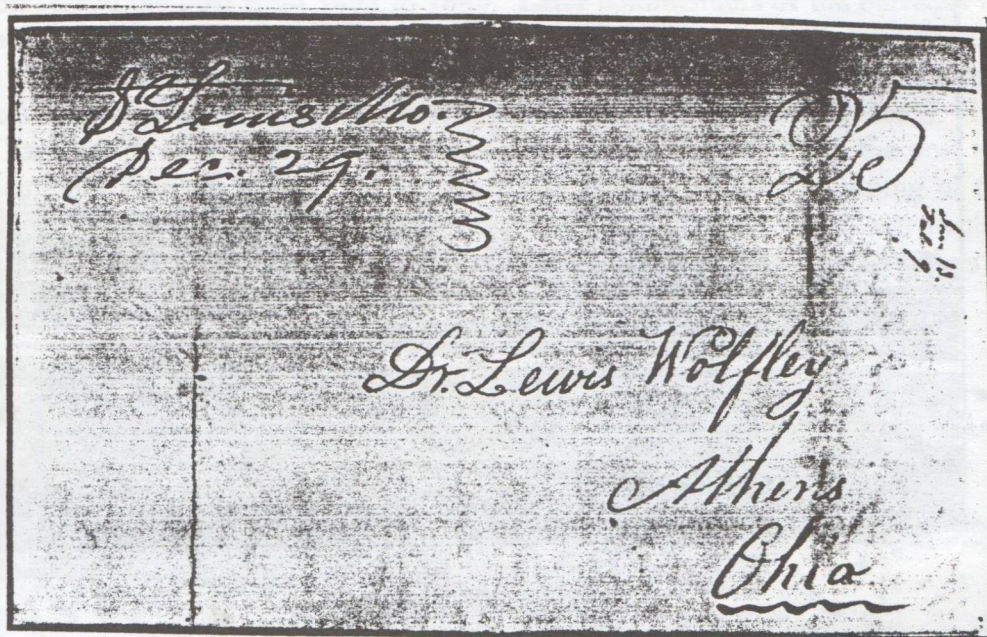 St Louis Mo.
Dec. 29.
25
Dr. Lewis Wolfley
Athens
Ohio